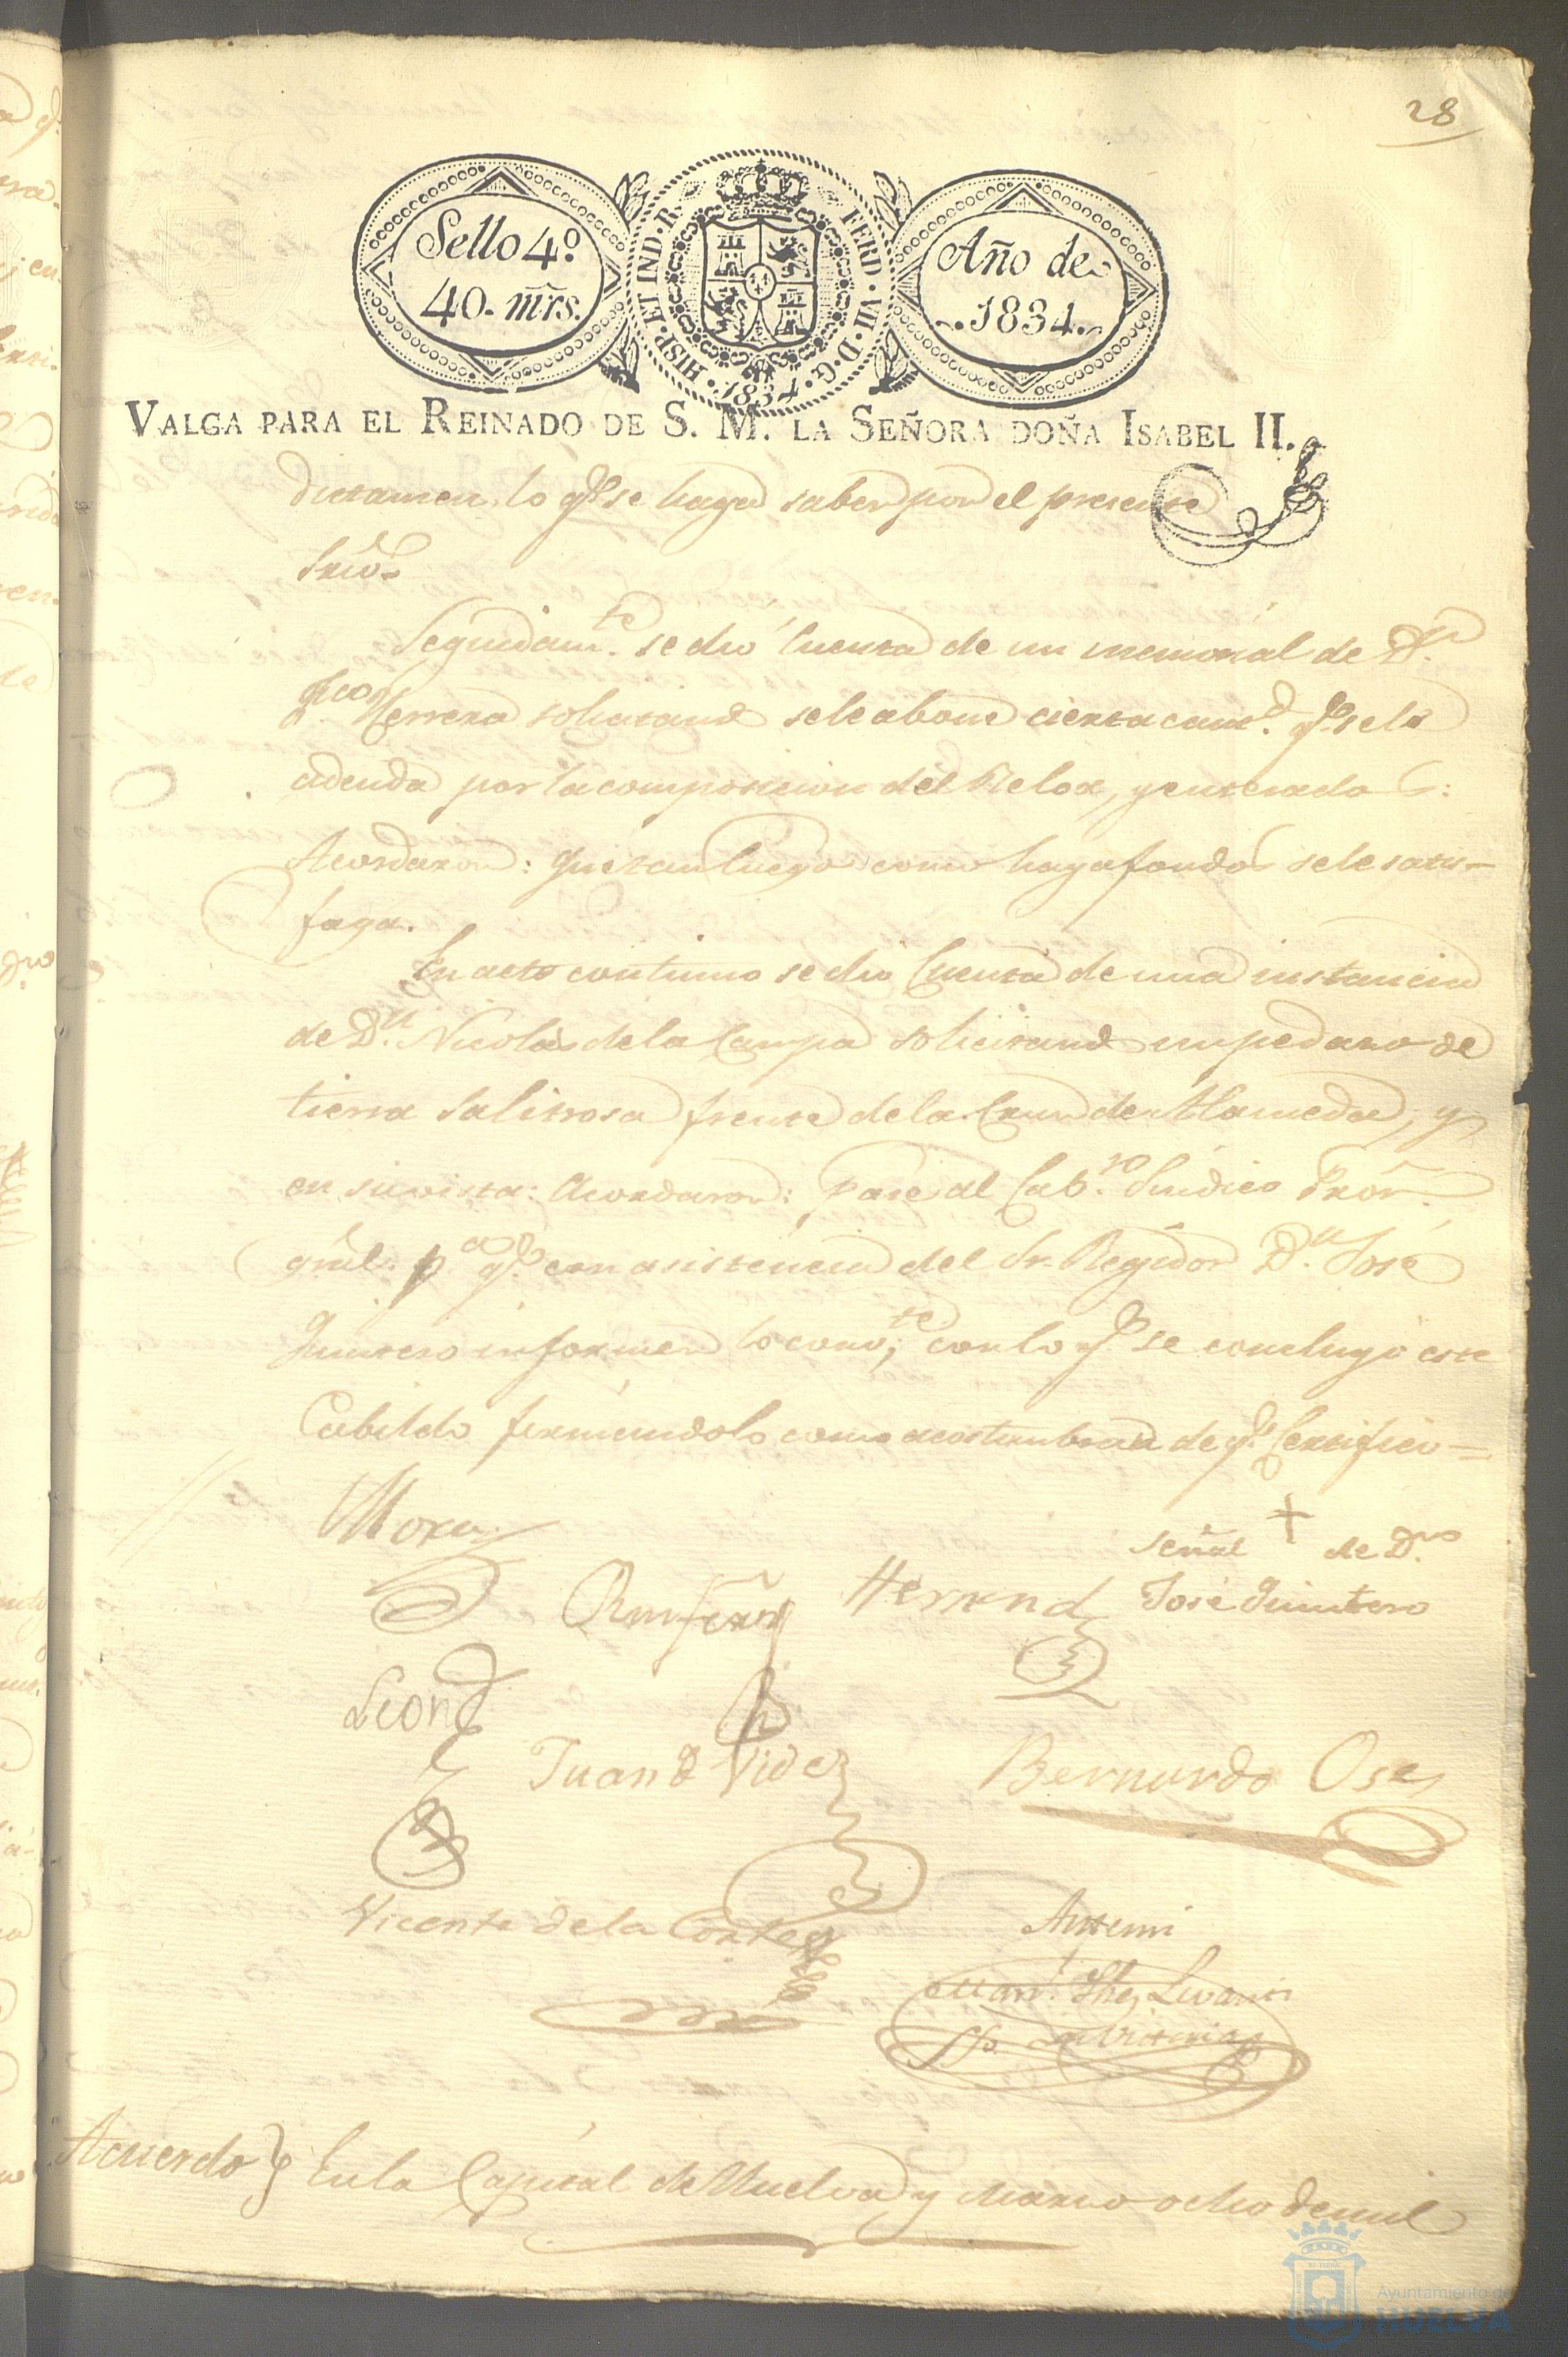 28
Sello 4º
40. mrs.
HISP. ET IND. R.
FERD. VII. D. G.
1834
Año de
1834.
VALGA PARA EL REINADO DE S. M. LA SEÑORA DOÑA ISABEL II.
dictamen, lo qe. se haga saber por el presente
Srio.
Seguidamte. se dió Cuenta de un memorial de Dn.
Fco. Herrera solicitand se le abone cierta cantd. qe. se le
adeuda por la composicion del Relox, y enterados:
Acordaron: que tan luego como haya fondos se le satis-
faga.
En acto continuo se dio Cuenta de una instancia
de Dn. Nicolas de la Campa solicitand un pedazo de
tierra Salitrosa frente de la Cruz de Alameda, y
en su vista: Acordaron: pase al Cabro. Sindico Pror.
gral. pa. qe. con asistencia del Sr. Regidor Dn. José
Quintero informen lo convte.; con lo qe. se concluyó este
Cabildo firmándolo como acostumbran de qe. Certifico=
Mora
señal + de Dn.
Hernand José Quintero
Leon
Juan de Videz Bernardo Oses
Vicente de la Corte Antemi
Acuerdo En la Capital de Huelva y Marzo ocho de mil
Ayuntamiento de
HUELVA